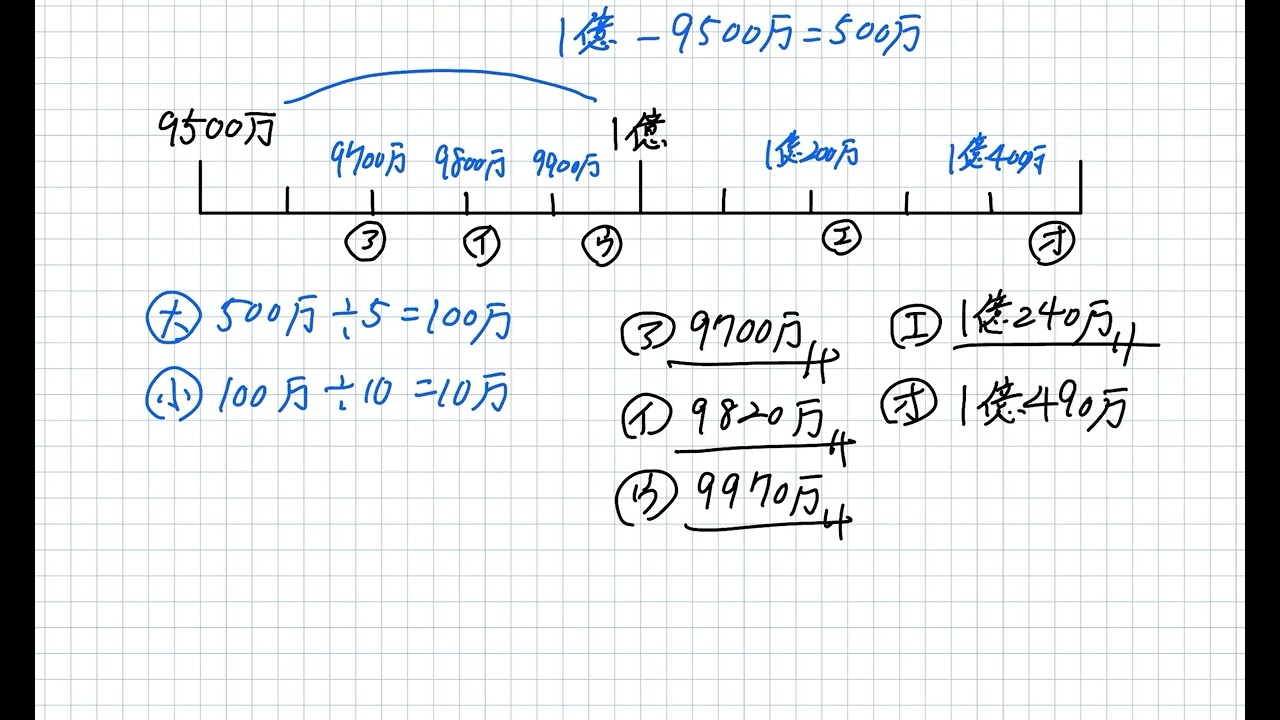 1億－9500万＝500万
9500万
1億
9700万 9800万 9900万
1億200万
1億400万
ア イ ウ エ オ
大 500万÷5＝100万
小 100万÷10＝10万
ア 9700万
イ 9820万
ウ 9970万
エ 1億240万
オ 1億490万